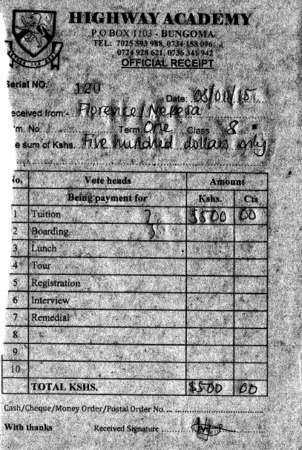 HIGHWAY ACADEMY
P.O BOX 1103 - BUNGOMA
TEL: 7025 593 988, 0734 158 096
0724 928 621, 0736 341 942
OFFICIAL RECEIPT
erial NO. 120
Date: 05/01/15
eceived from:- Florence Nekesa
m. No. Term One Class 8
e sum of Kshs. Five hundred dollars only
o. Vote heads Amount
Being payment for Kshs. Cts
1 Tuition $500 00
2 Boarding
3 Lunch
4 Tour
5 Registration
6 Interview
7 Remedial
8
9
10
TOTAL KSHS. $500 00
Cash/Cheque/Money Order/Postal Order No.
With thanks Received Signature